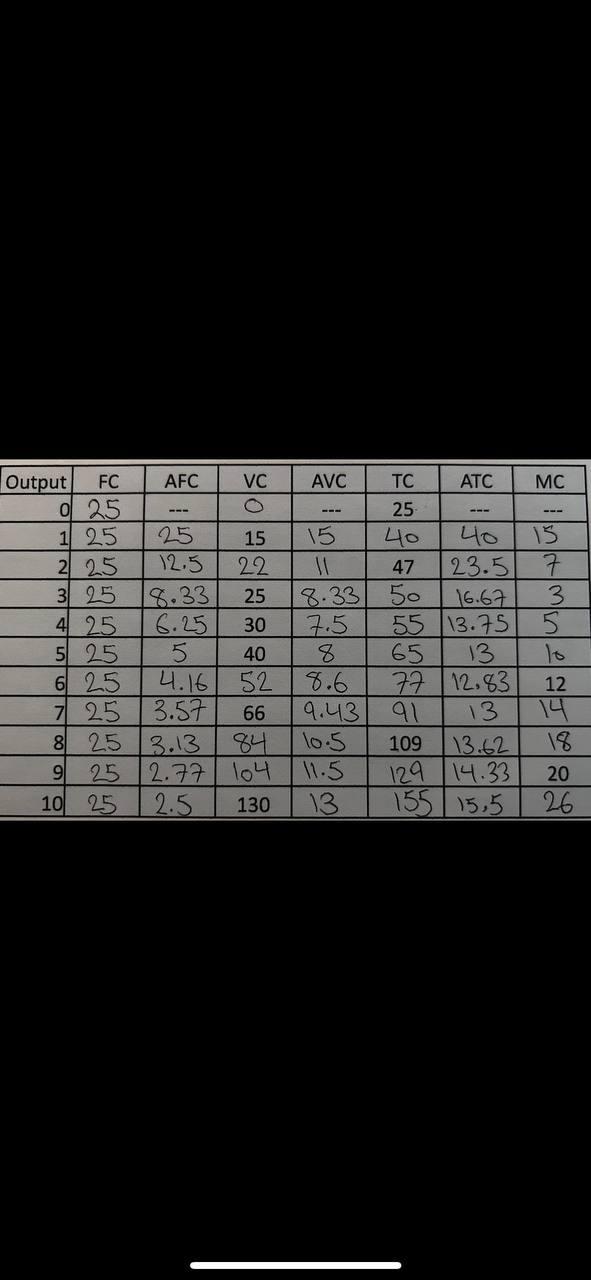 Output FC AFC VC AVC TC ATC MC
0 25 --- 0 --- 25 --- ---
1 25 25 15 15 40 40 15
2 25 12.5 22 11 47 23.5 7
3 25 8.33 25 8.33 50 16.67 3
4 25 6.25 30 7.5 55 13.75 5
5 25 5 40 8 65 13 10
6 25 4.16 52 8.6 77 12.83 12
7 25 3.57 66 9.43 91 13 14
8 25 3.13 84 10.5 109 13.62 18
9 25 2.77 104 11.5 129 14.33 20
10 25 2.5 130 13 155 15.5 26